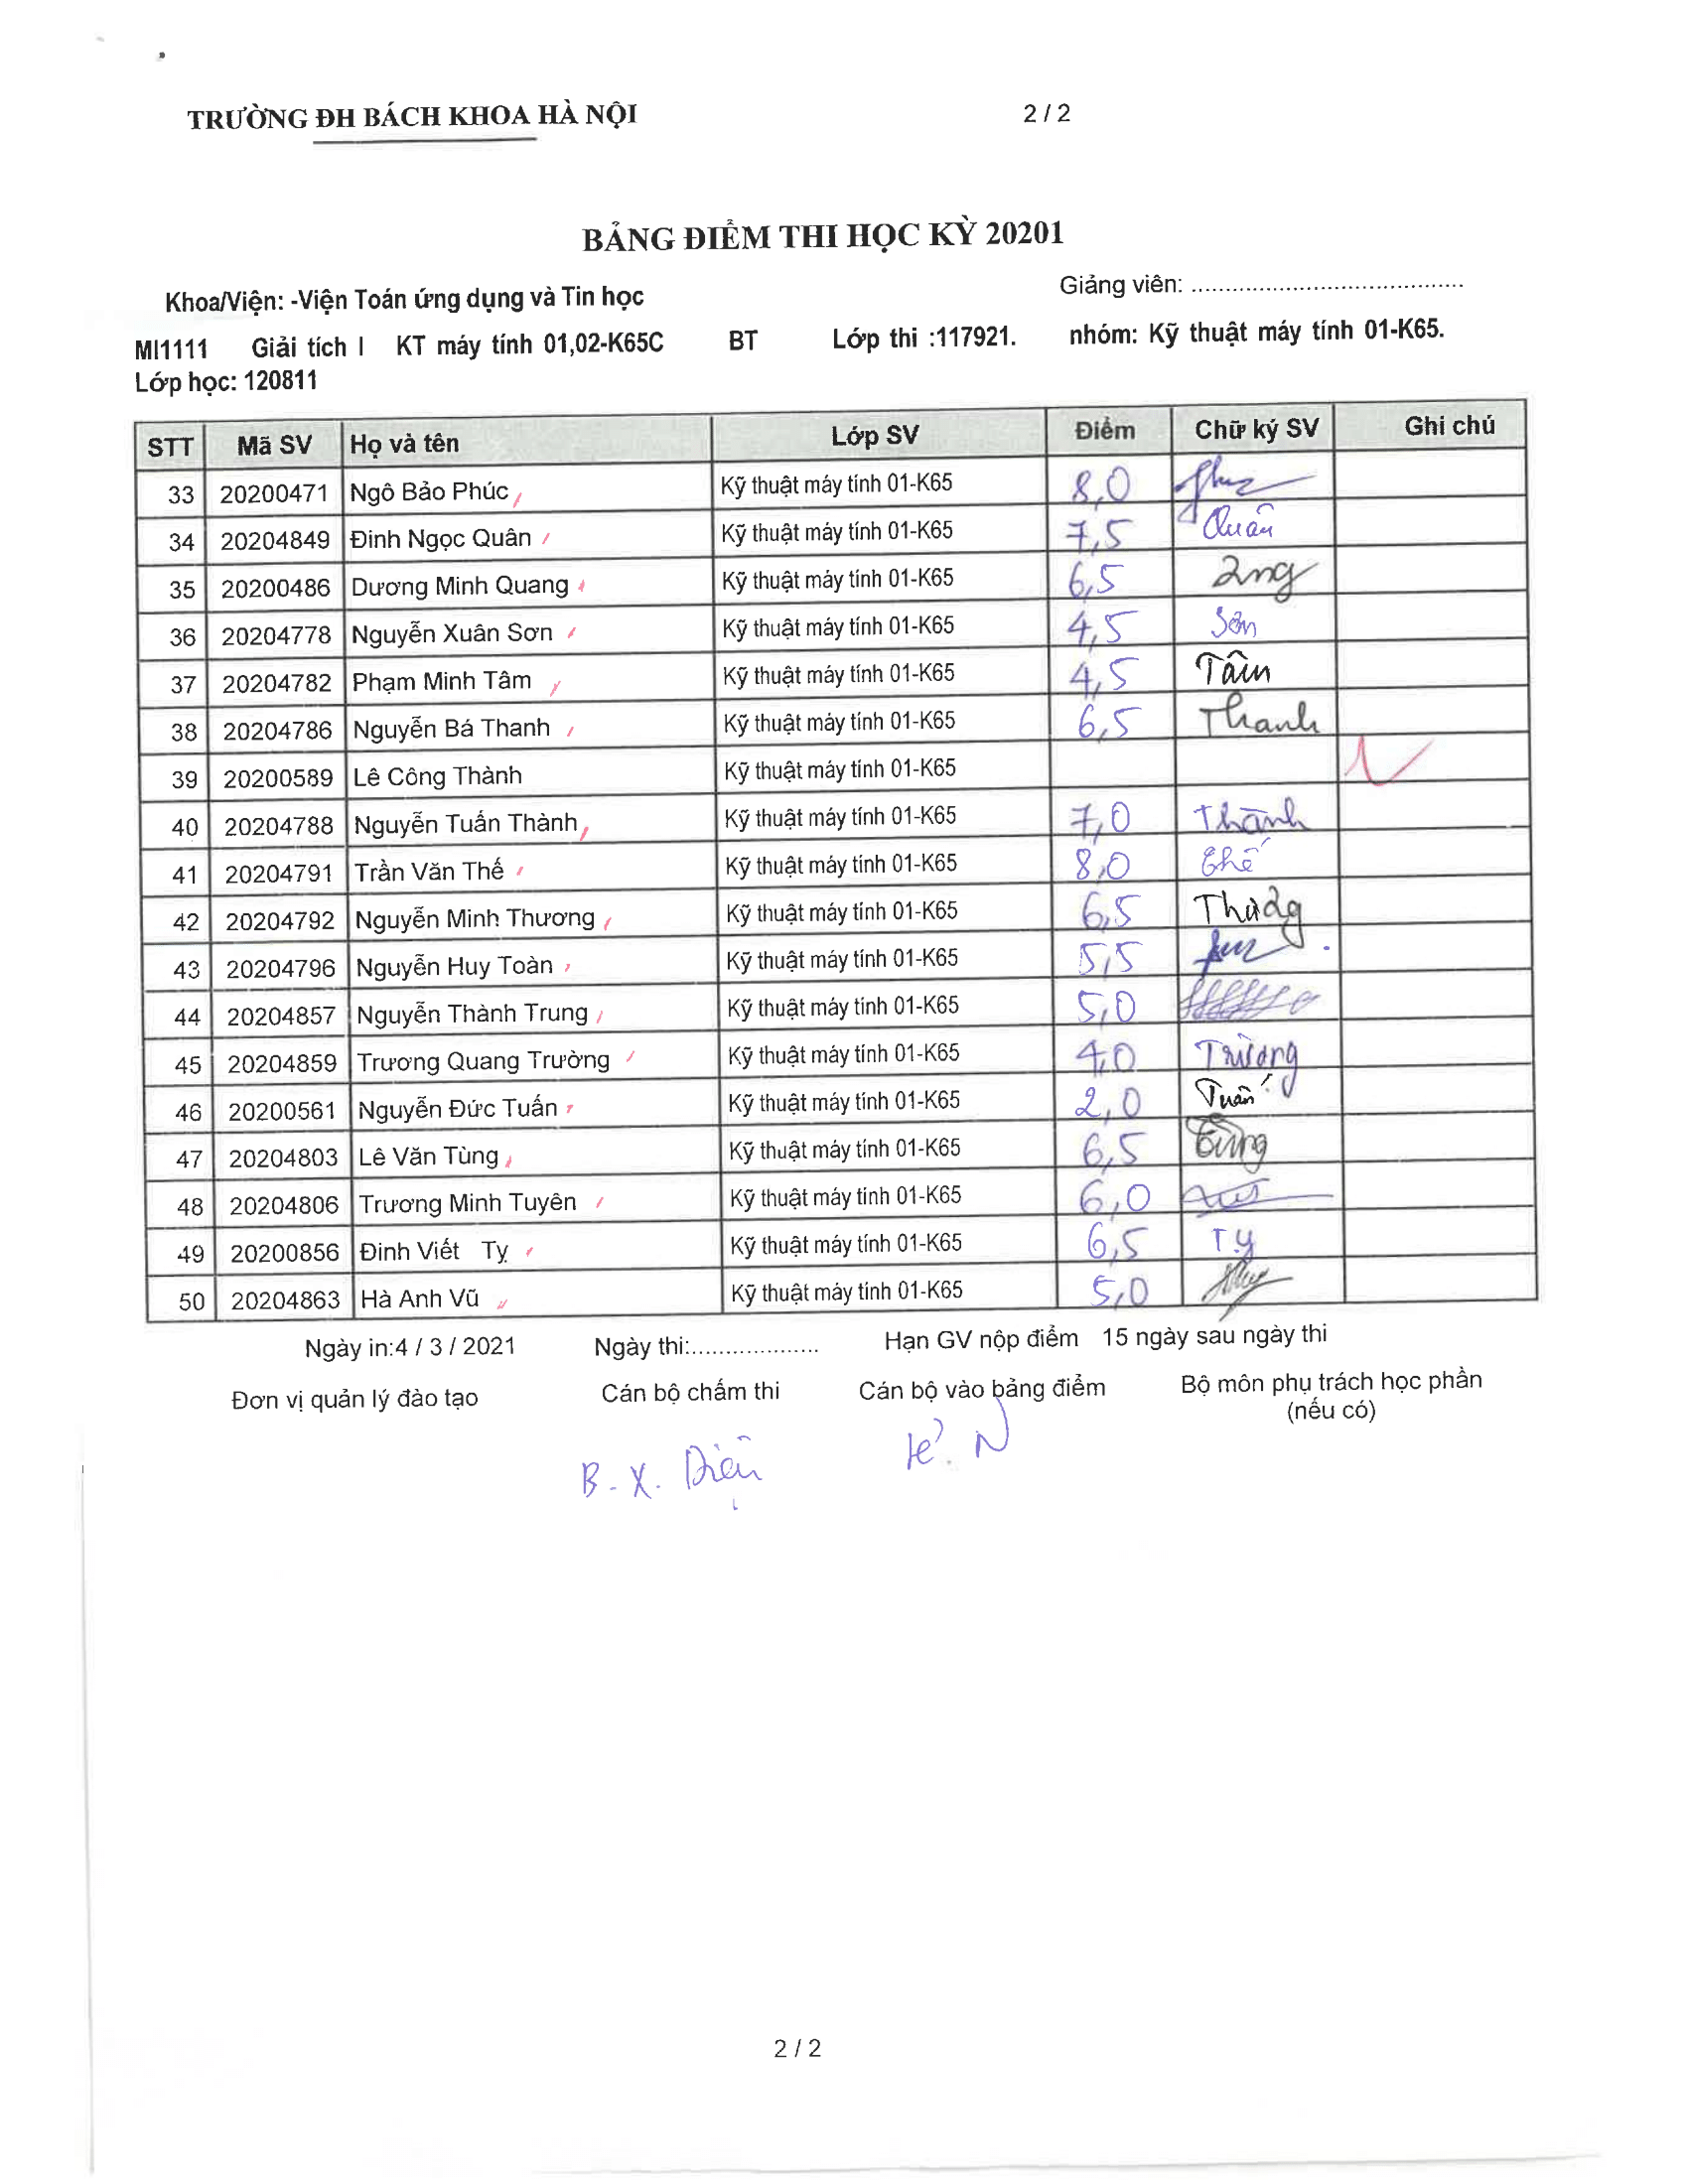 TRƯỜNG ĐH BÁCH KHOA HÀ NỘI 2 / 2
BẢNG ĐIỂM THI HỌC KỲ 20201
Khoa/Viện: -Viện Toán ứng dụng và Tin học Giảng viên: ........................................
MI1111 Giải tích I KT máy tính 01,02-K65C BT Lớp thi :117921. nhóm: Kỹ thuật máy tính 01-K65.
Lớp học: 120811
STT Mã SV Họ và tên Lớp SV Điểm Chữ ký SV Ghi chú
33 20200471 Ngô Bảo Phúc Kỹ thuật máy tính 01-K65 8,0
34 20204849 Đinh Ngọc Quân Kỹ thuật máy tính 01-K65 7,5 Quân
35 20200486 Dương Minh Quang Kỹ thuật máy tính 01-K65 6,5
36 20204778 Nguyễn Xuân Sơn Kỹ thuật máy tính 01-K65 4,5 Sơn
37 20204782 Phạm Minh Tâm Kỹ thuật máy tính 01-K65 4,5 Tâm
38 20204786 Nguyễn Bá Thanh Kỹ thuật máy tính 01-K65 6,5 Thanh
39 20200589 Lê Công Thành Kỹ thuật máy tính 01-K65
40 20204788 Nguyễn Tuấn Thành Kỹ thuật máy tính 01-K65 7,0 Thành
41 20204791 Trần Văn Thế Kỹ thuật máy tính 01-K65 8,0 Thế
42 20204792 Nguyễn Minh Thương Kỹ thuật máy tính 01-K65 6,5
43 20204796 Nguyễn Huy Toàn Kỹ thuật máy tính 01-K65 5,5
44 20204857 Nguyễn Thành Trung Kỹ thuật máy tính 01-K65 5,0
45 20204859 Trương Quang Trường Kỹ thuật máy tính 01-K65 4,0 Trường
46 20200561 Nguyễn Đức Tuấn Kỹ thuật máy tính 01-K65 2,0 Tuấn
47 20204803 Lê Văn Tùng Kỹ thuật máy tính 01-K65 6,5 Tùng
48 20204806 Trương Minh Tuyên Kỹ thuật máy tính 01-K65 6,0
49 20200856 Đinh Viết Tỵ Kỹ thuật máy tính 01-K65 6,5 Tỵ
50 20204863 Hà Anh Vũ Kỹ thuật máy tính 01-K65 5,0
Ngày in:4 / 3 / 2021 Ngày thi:................... Hạn GV nộp điểm 15 ngày sau ngày thi
Đơn vị quản lý đào tạo Cán bộ chấm thi Cán bộ vào bảng điểm Bộ môn phụ trách học phần
(nếu có)
B. X. Diệu
2 / 2